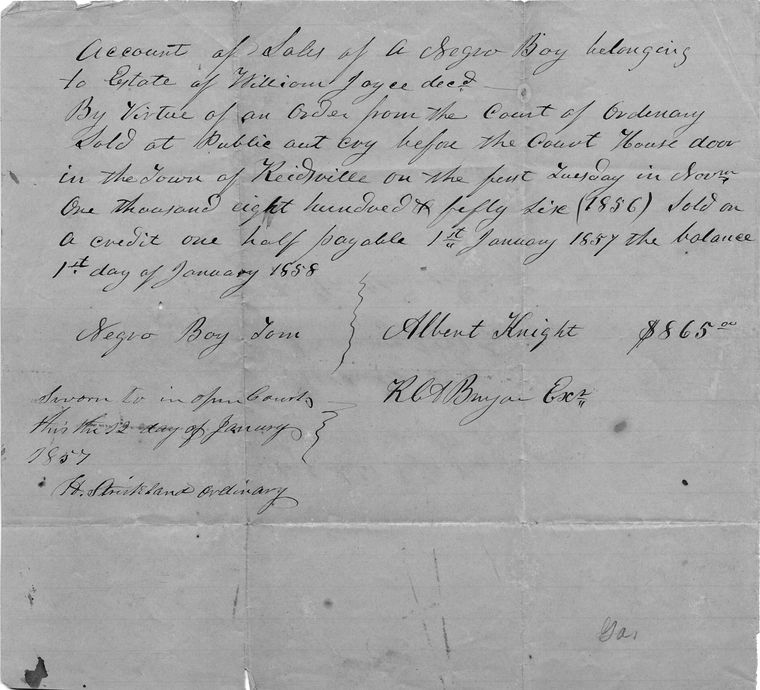 Account of Sales of a Negro Boy belonging
to Estate of William Joyce decd
By Virtue of an Order from the Court of Ordinary
Sold at Public out cry before the Court House door
in the Town of Reidsville on the first Tuesday in Novr
One thousand eight hundred & fifty six (1856) Sold on
a credit one half payable 1st January 1857 the balance
1st day of January 1858
Negro Boy Tom Albert Knight $865.00
Sworn to in open Court
this the 12 day of January
1857
Bryan Exr
H. Strickland Ordinary
Ga.